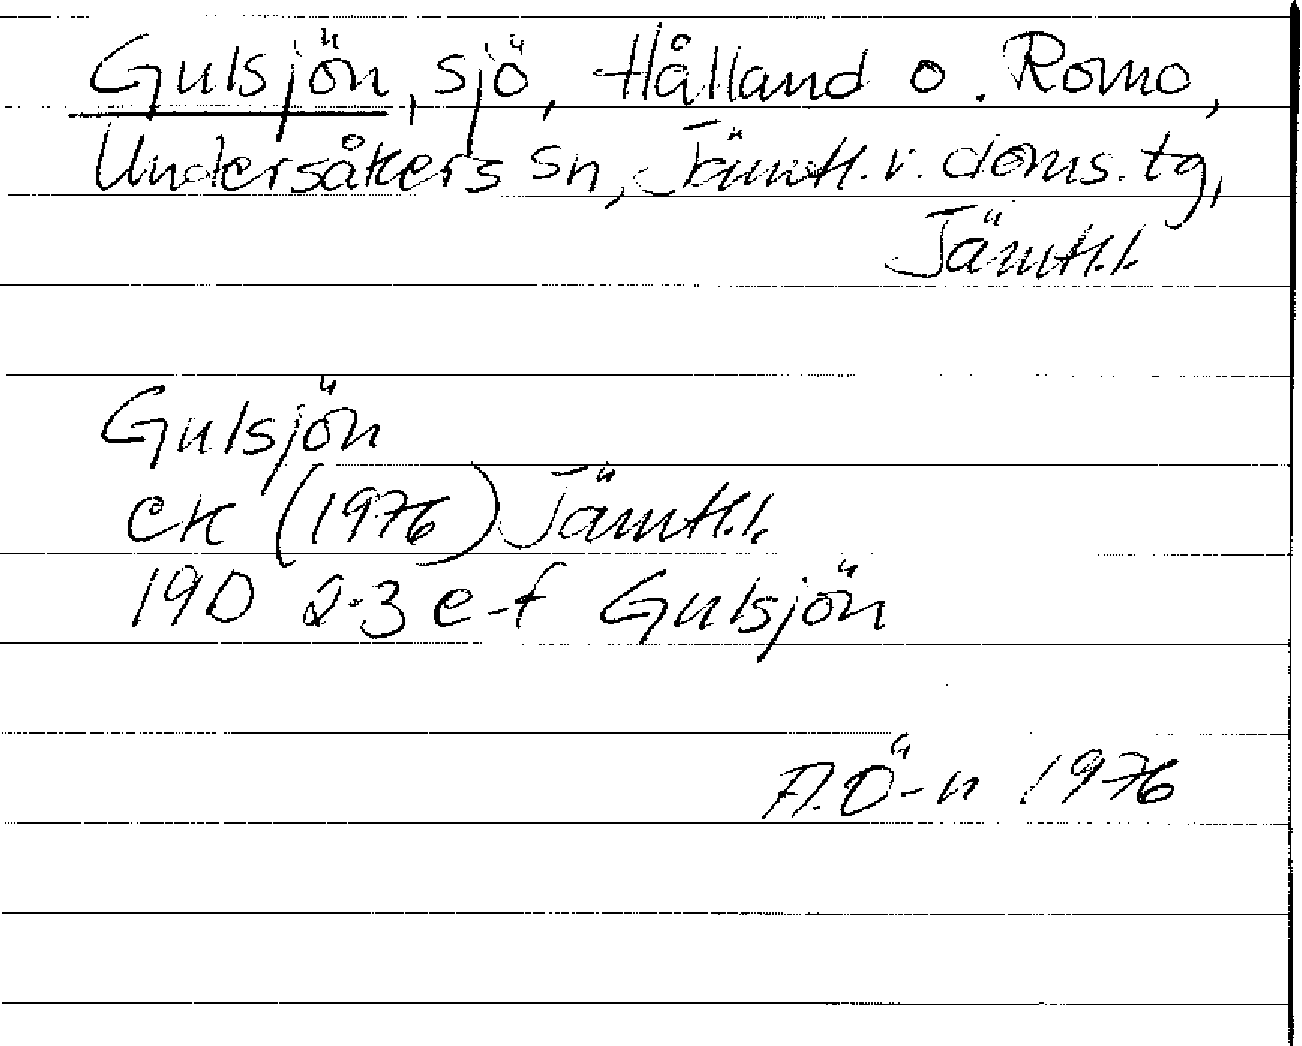 Gulsjön, sjö, Hålland o. Romo,
Undersåkers sn, Jämtl. v. doms. tg,
Jämtl.l.
Gulsjön
EK (1976) Jämtl.l.
19D 2-3 e-f Gulsjön
A.Ö-n 1976